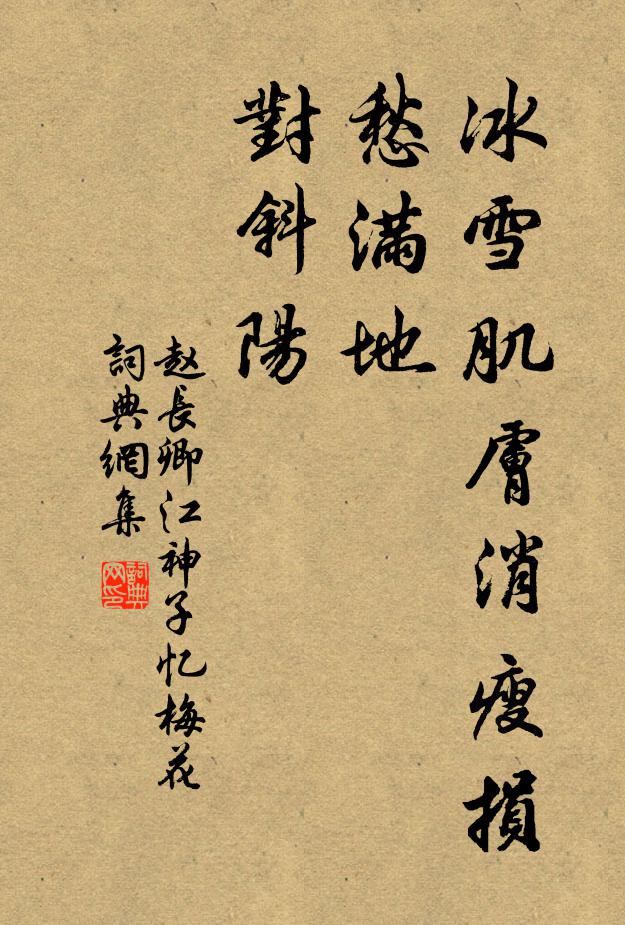 冰雪肌膚消瘦損
愁滿地
對斜陽
赵長卿江神子忆梅花
詞典網集
詞典网印